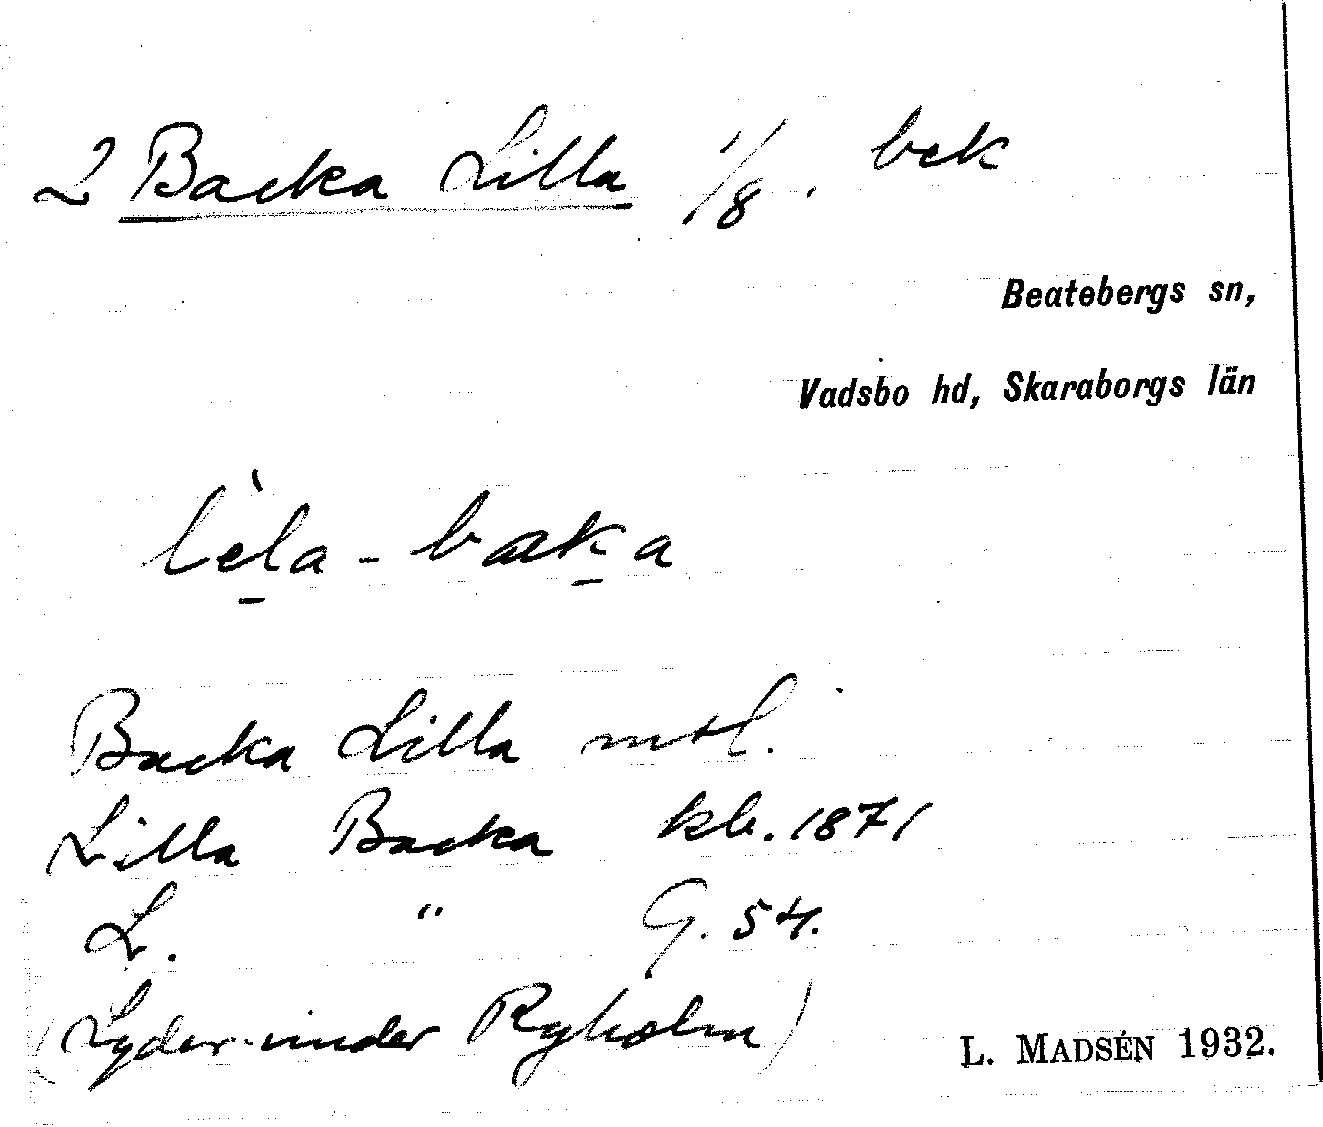 2 Backa Lilla 1/8. bek
Beatebergs sn,
Vadsbo hd, Skaraborgs län
lèla-baka
Backa Lilla mtl.
Lilla Backa kb. 1871
L. " G. 54.
(Lyder under Ryholm)
L. MADSÉN 1932.